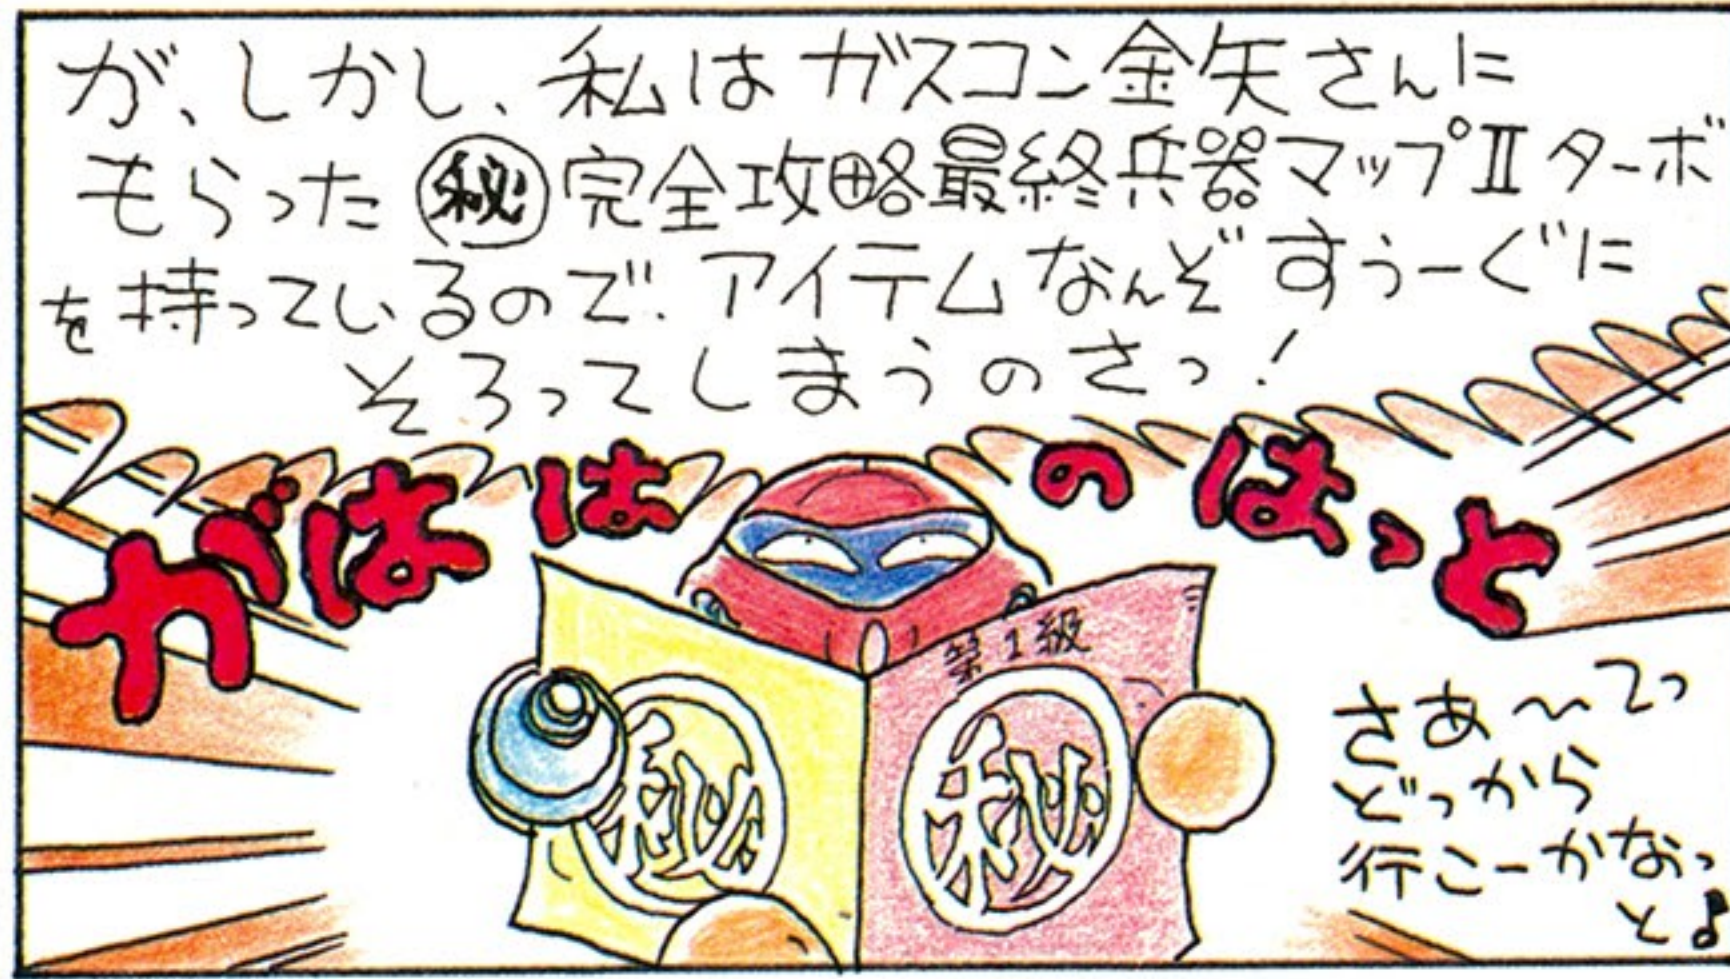 が、しかし、私はガスコン金矢さんに
もらった㊙完全攻略最終兵器マップⅡターボ
を持っているので、アイテムなんぞすぅーぐに
そろってしまうのさっ!
がははのはっと
第1級
秘
秘
さあ~てっ
どっから
行こーかなっ
と♪